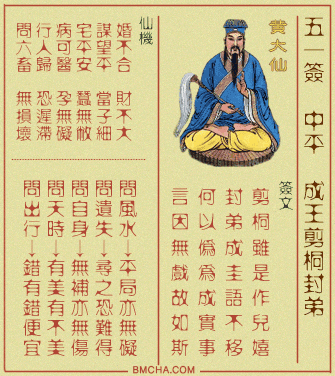 五一簽 中平 成王剪桐封弟
黃大仙
簽文
剪桐雖是作兒嬉
封弟成圭語不移
何以僞爲成實事
言因無戲故如斯
仙機
婚不合 財不大
謀望平 當子細
宅平安 蠶無敝
病可醫 孕無礙
行人歸 恐遲滯
問六畜 無損壞
問風水→平局亦無礙
問遺失→尋之恐難得
問自身→無補亦無傷
問天時→有美有不美
問出行→錯有錯便宜
BMCHA.COM